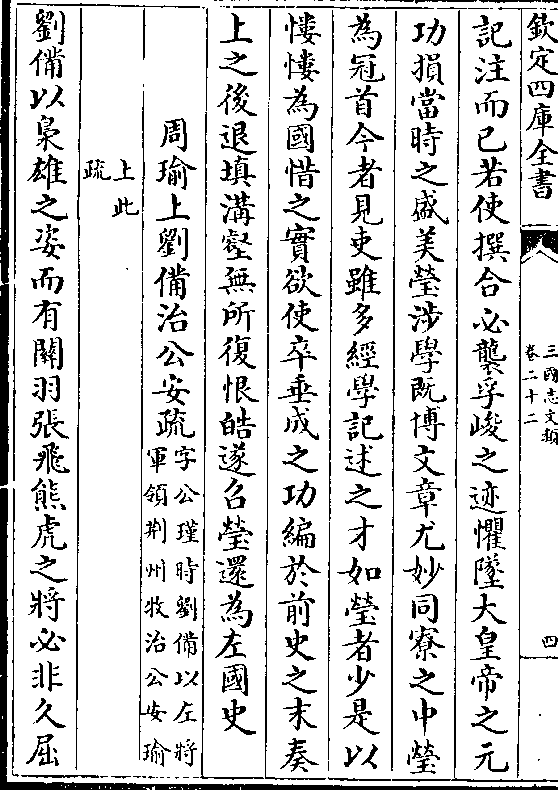 欽定四庫全書
三國志文類
卷二十二
四
記注而已若使撰合必襲孚峻之迹懼墜大皇帝之元
功損當時之盛美瑩涉學既博文章尤妙同寮之中瑩
為冠首今者見吏雖多經學記述之才如瑩者少是以
慺慺為國惜之實欲使卒垂成之功編於前史之末奏
上之後退填溝壑無所復恨皓遂召瑩還為左國史
周瑜上劉備治公安疏字公瑾時劉備以左將
軍領荆州牧治公安瑜
上此
疏
劉備以梟雄之姿而有關羽張飛熊虎之將必非久屈